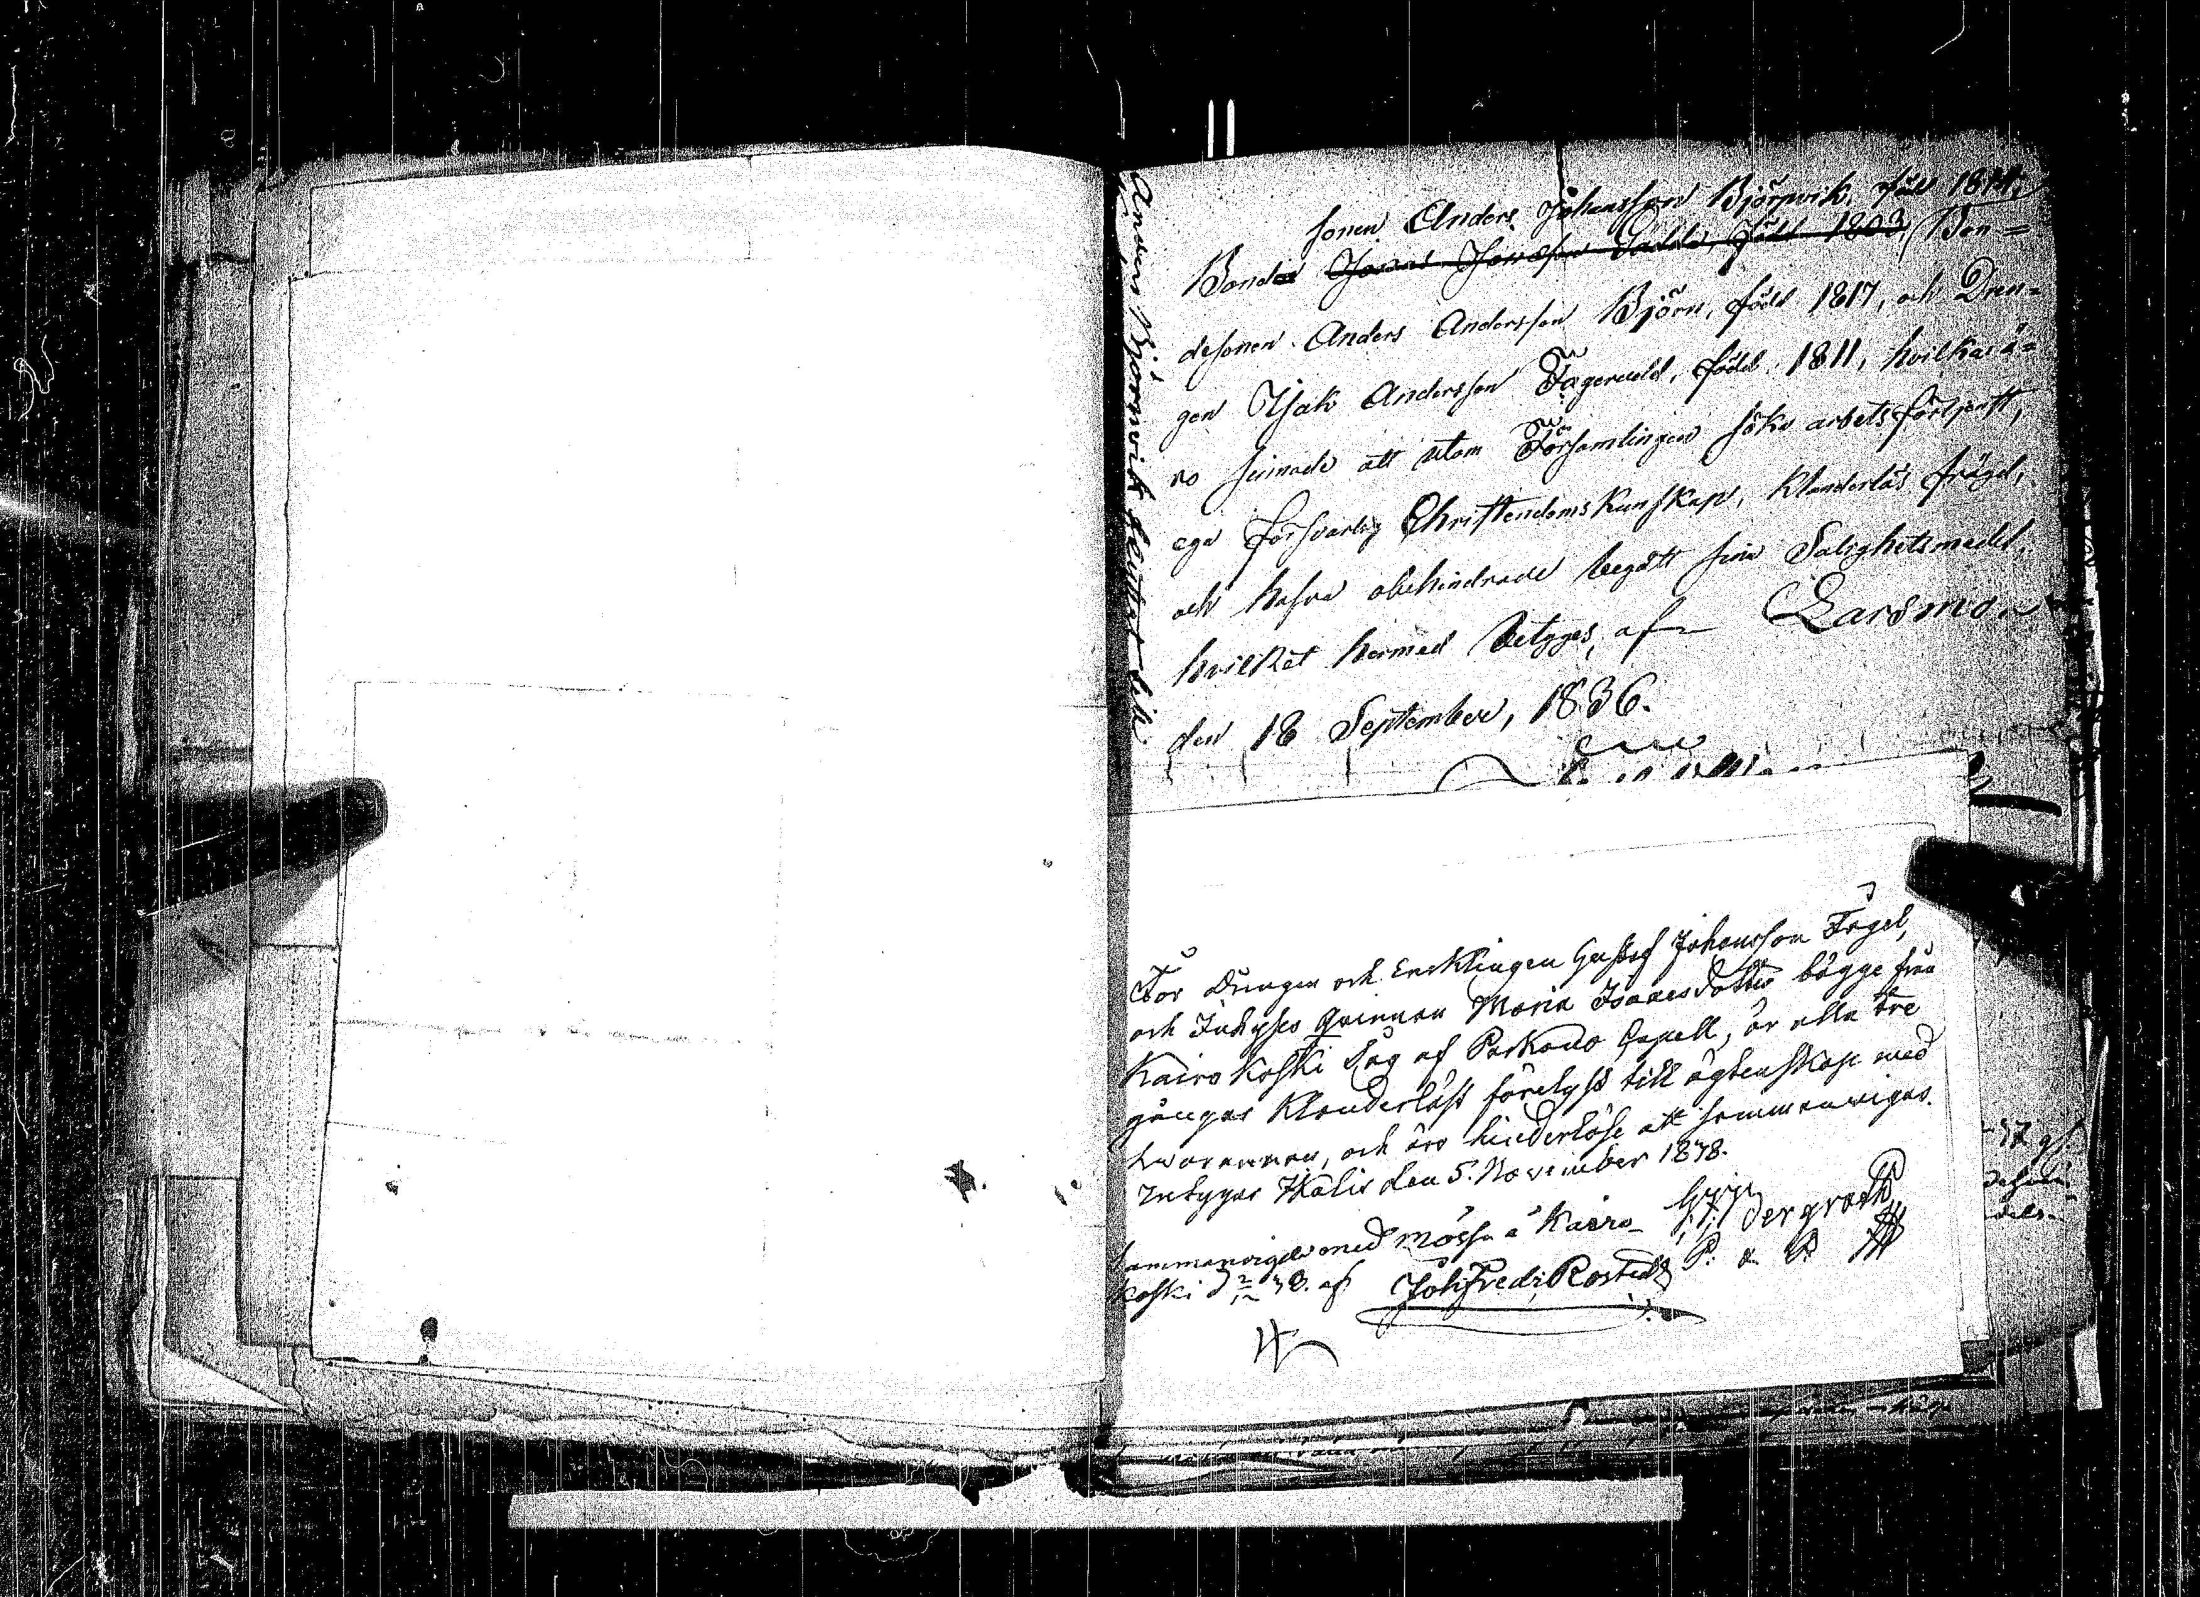 sonen Anders Johansson Björnvik, född 1814,
Bonde Jonas Jonasson född 1803, Bon=
desonen Anders Andersson Björn, född 1817, och Dren=
gen Isak Andersson Fagerudd, född 1811, hvilka ä=
ro sinnade att utom Församlingen söka arbetsförtjenst,
ega försvarlig Christendoms Kunskap, klanderlös frägd,
och hafva obehindrade begått sina Salighetsmedel,
hvilket hermed betyges, af Larsmo
den 18 September, 1836.
Anders Björnvik
För Drengen och Encklingen Gustaf Johansson Fågel,
och Inhyses Qvinnan Maria Isaacsdotter bägge från
Kairokoski Såg af Parkano Capell, är alla tre
gångor klanderlöst förelyst till ägtenskap med
hvarannan, och äro hinderlöse att sammanvigas.
Intygar Ikalis den 5. November 1838.
Sammanvigde med mössa å Kairo
koski d 2/12 38. af Joh: Fredr: Rostedt